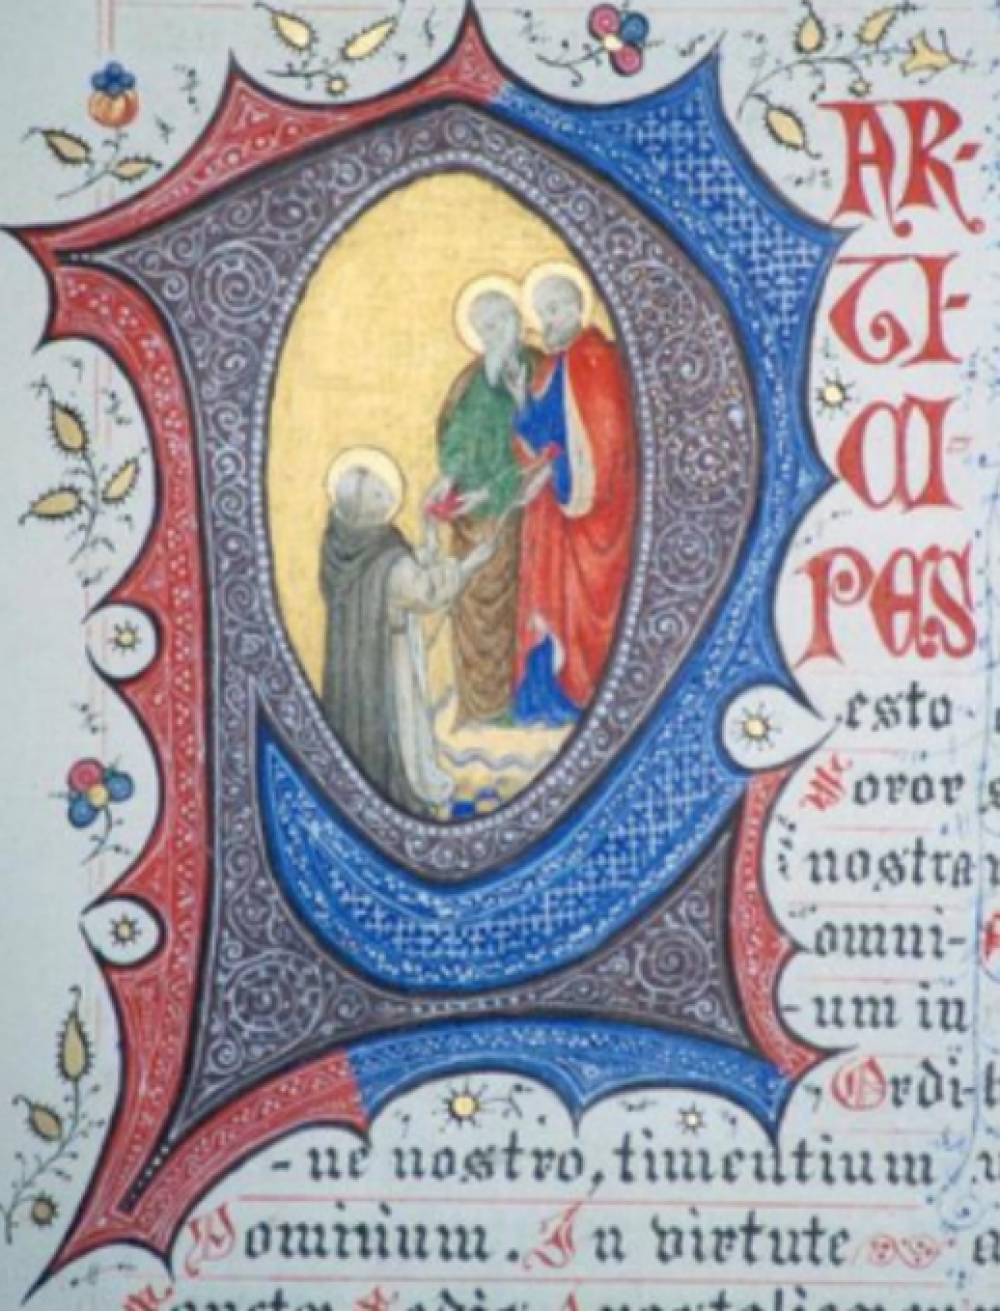 PAR-
TI-
CI-
PES
esto
Soror
nostra
omni-
-um in
Ordi-
-ne nostro, timentium
Dominum. In virtute